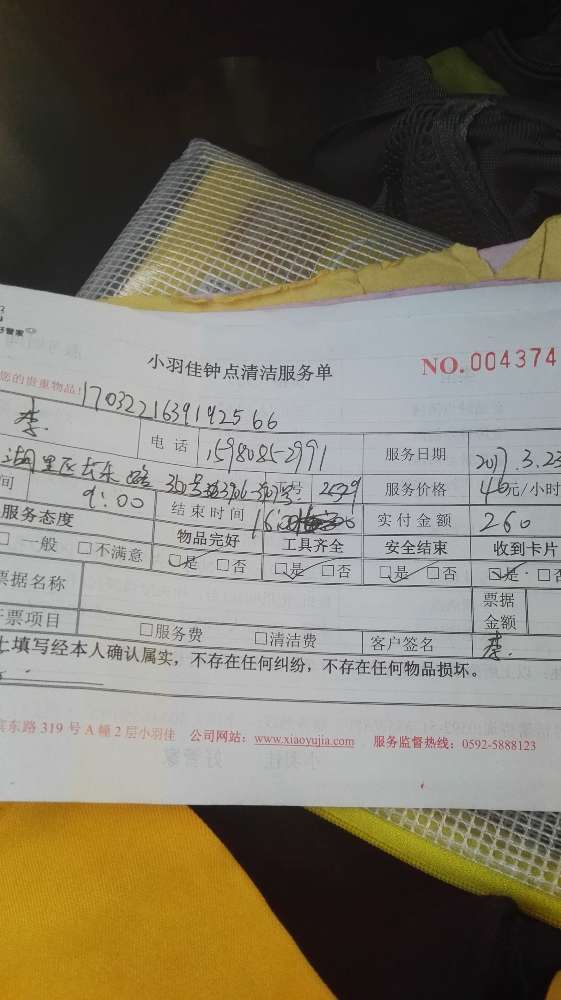 好管家
小羽佳钟点清洁服务单 NO.004374
您的贵重物品! 17032216391942566
李 电话 15980852991 服务日期 2017.3.23
湖里区长乐路 号 2529 服务价格 40元/小时
间 9:00 结束时间 16 实付金额 260
服务态度 物品完好 工具齐全 安全结束 收到卡片
□一般 □不满意 □是 □否 □是 □否 □是 □否 □是 □否
票据名称 票据金额
开票项目 □服务费 □清洁费 客户签名 李
上填写经本人确认属实，不存在任何纠纷，不存在任何物品损坏。
宾东路319号A幢2层小羽佳 公司网站：www.xiaoyujia.com 服务监督热线：0592-5888123